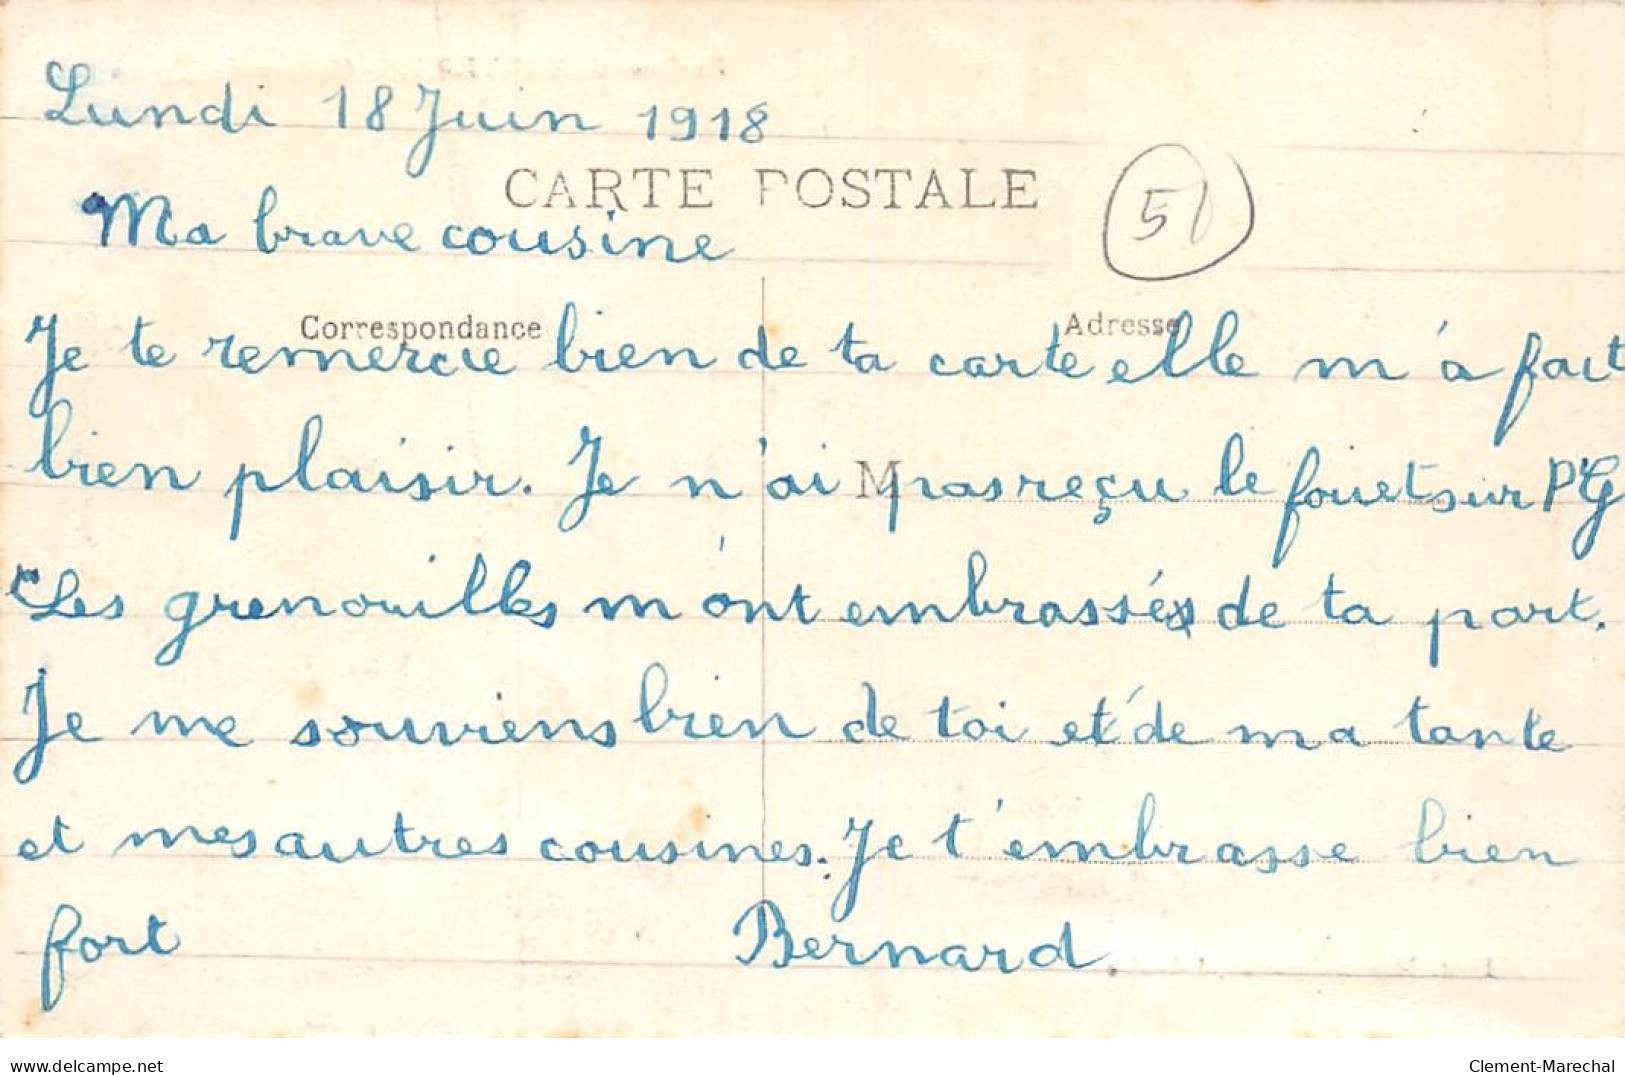 Lundi 18 Juin 1918
CARTE POSTALE
51
Ma brave cousine
Correspondance
Adresse
Je te remercie bien de ta carte elle m'a fait
bien plaisir. Je n'ai pas reçu le fouet sur P'G
M
Les grenouilles m'ont embrassés de ta part.
Je me souviens bien de toi et de ma tante
et mes autres cousines. Je t'embrasse bien
fort Bernard
www.delcampe.net
Clement-Marechal